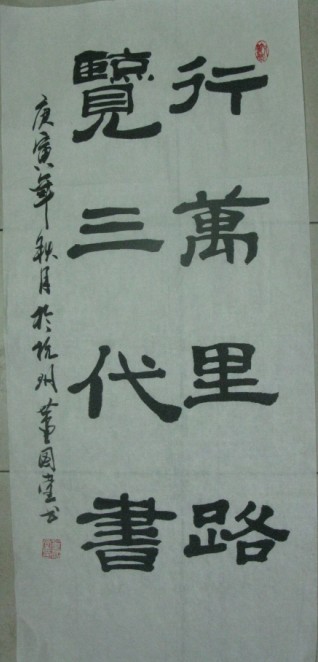 行萬里路
覽三代書
庚寅年秋月於杭州董國堂书